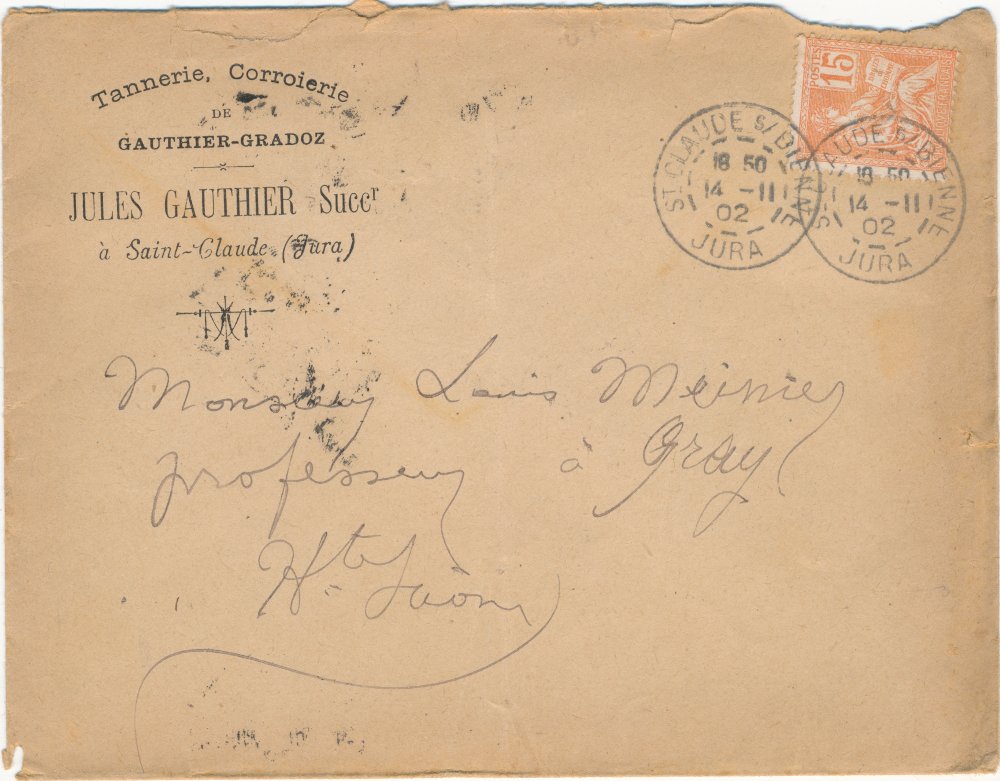 Tannerie, Corroierie
DE
GAUTHIER-GRADOZ
JULES GAUTHIER Succr
à Saint-Claude (Jura)
POSTES
15
ST CLAUDE S/ BIENNE
18 50
14 - 11
02
JURA
ST CLAUDE S/ BIENNE
18 50
14 - 11
02
JURA
Monsieur Louis
professeur à Gray
Hte Saône